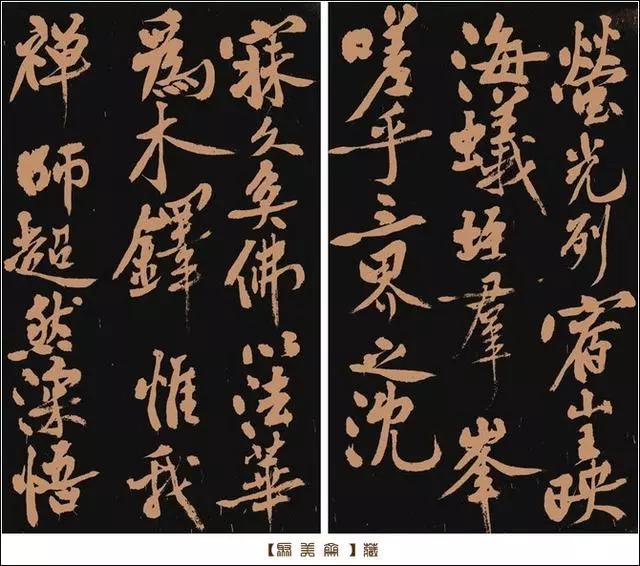 螢光列宿山王映
海蟻垤羣峯
嗟乎三界之沈
寐久矣佛以法華
爲木鐸惟我
禪師超然深悟
美 藏